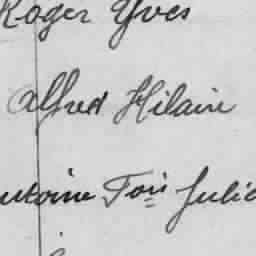 Roger Yves
Alfred Hilaire
Antoine Fois Julie